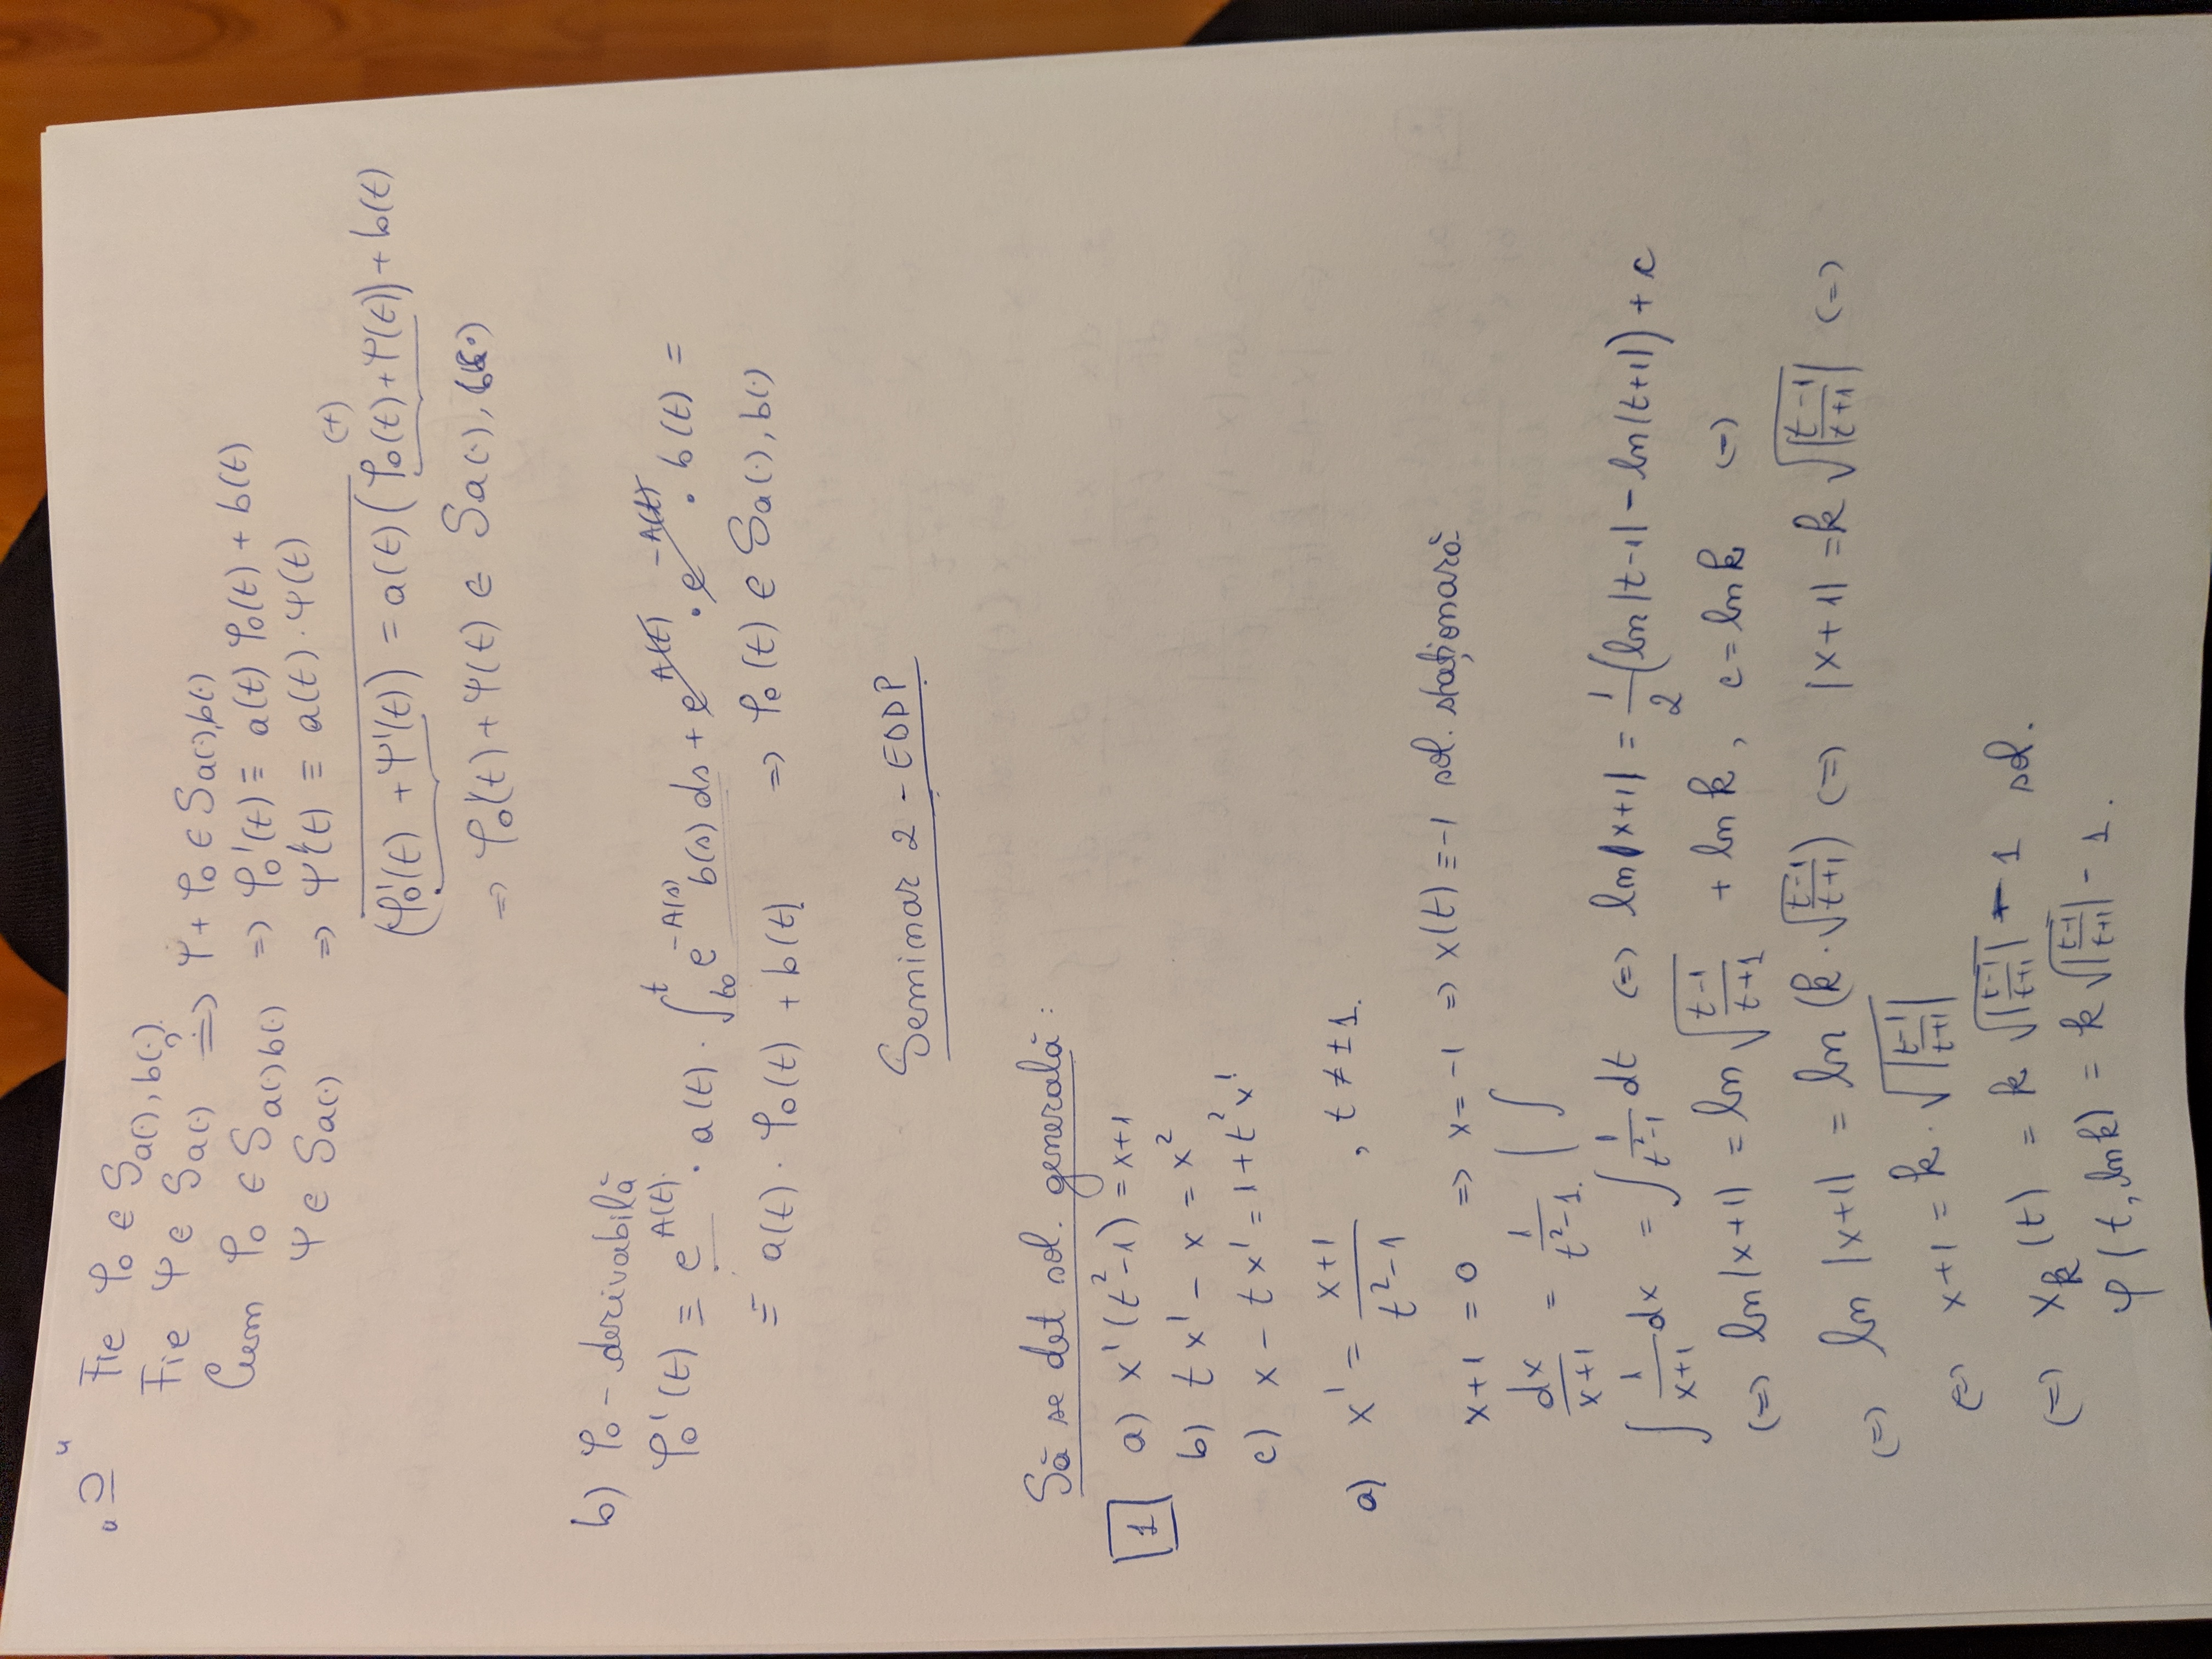 „⊇"  Fie φ₀ ∈ S_{a(·), b(·)}
Fie ψ ∈ S_{a(·)} ?⟹ ψ + φ₀ ∈ S_{a(·),b(·)}
Cum φ₀ ∈ S_{a(·)b(·)} => φ₀'(t) ≡ a(t) φ₀(t) + b(t)
ψ ∈ S_{a(·)} => ψ'(t) ≡ a(t) · ψ(t)
(+)
(φ₀'(t) + ψ'(t)) = a(t) (φ₀(t) + ψ(t)) + b(t)
=> φ₀(t) + ψ(t) ∈ S_{a(·), b(·)}
b) φ₀ - derivabilă
φ₀'(t) ≡ e^{A(t)} · a(t) · ∫_{t₀}^{t} e^{-A(s)} b(s) ds + e^{A(t)} · e^{-A(t)} · b(t) =
≡ a(t) · φ₀(t) + b(t) => φ₀(t) ∈ S_{a(·), b(·)}
Seminar 2 - EDDP
Să se det sol. generală:
1 a) x'(t²-1) = x+1
b) tx' - x = x²
c) x - tx' = 1 + t²x'
a) x' = (x+1)/(t²-1) , t ≠ ±1.
x+1 = 0 => x = -1 => x(t) ≡ -1 sol. staționară
dx/(x+1) = 1/(t²-1) | ∫
∫ 1/(x+1) dx = ∫ 1/(t²-1) dt (=) ln|x+1| = 1/2 (ln|t-1| - ln|t+1|) + c
(=) ln|x+1| = ln √((t-1)/(t+1)) + ln k, c = ln k (=)
(=) ln |x+1| = ln (k · √((t-1)/(t+1))) (=) |x+1| = k √|(t-1)/(t+1)| (=)
(=) x+1 = k · √|(t-1)/(t+1)|
(=) x_k(t) = k √|(t-1)/(t+1)| - 1 sol.
φ(t, ln k) = k √|(t-1)/(t+1)| - 1.